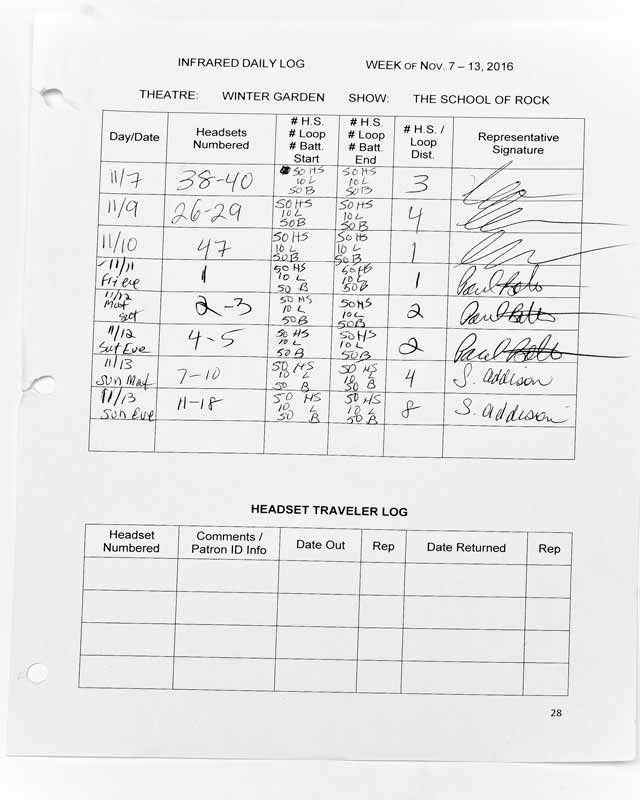 INFRARED DAILY LOG WEEK OF NOV. 7 – 13, 2016
THEATRE: WINTER GARDEN SHOW: THE SCHOOL OF ROCK
Day/Date
Headsets
Numbered
# H.S.
# Loop
# Batt.
Start
# H.S.
# Loop
# Batt.
End
# H.S. /
Loop
Dist.
Representative
Signature
11/7
38-40
50 HS
10 L
50 B
50 HS
10 L
50 B
3
11/9
26-29
50 HS
10 L
50 B
50 HS
10 L
50 B
4
11/10
47
50 HS
10 L
50 B
50 HS
10 L
50 B
1
11/11
Fri eve
1
50 HS
10 L
50 B
50 HS
10 L
50 B
1
Paul
11/12
Mat
Sat
2-3
50 HS
10 L
50 B
50 HS
10 L
50 B
2
Paul
11/12
Sat Eve
4-5
50 HS
10 L
50 B
50 HS
10 L
50 B
2
Paul
11/13
Sun Mat
7-10
50 HS
10 L
50 B
50 HS
10 L
50 B
4
S. Addison
11/13
Sun Eve
11-18
50 HS
10 L
50 B
50 HS
10 L
50 B
8
S. Addison
HEADSET TRAVELER LOG
Headset
Numbered
Comments /
Patron ID Info
Date Out
Rep
Date Returned
Rep
28